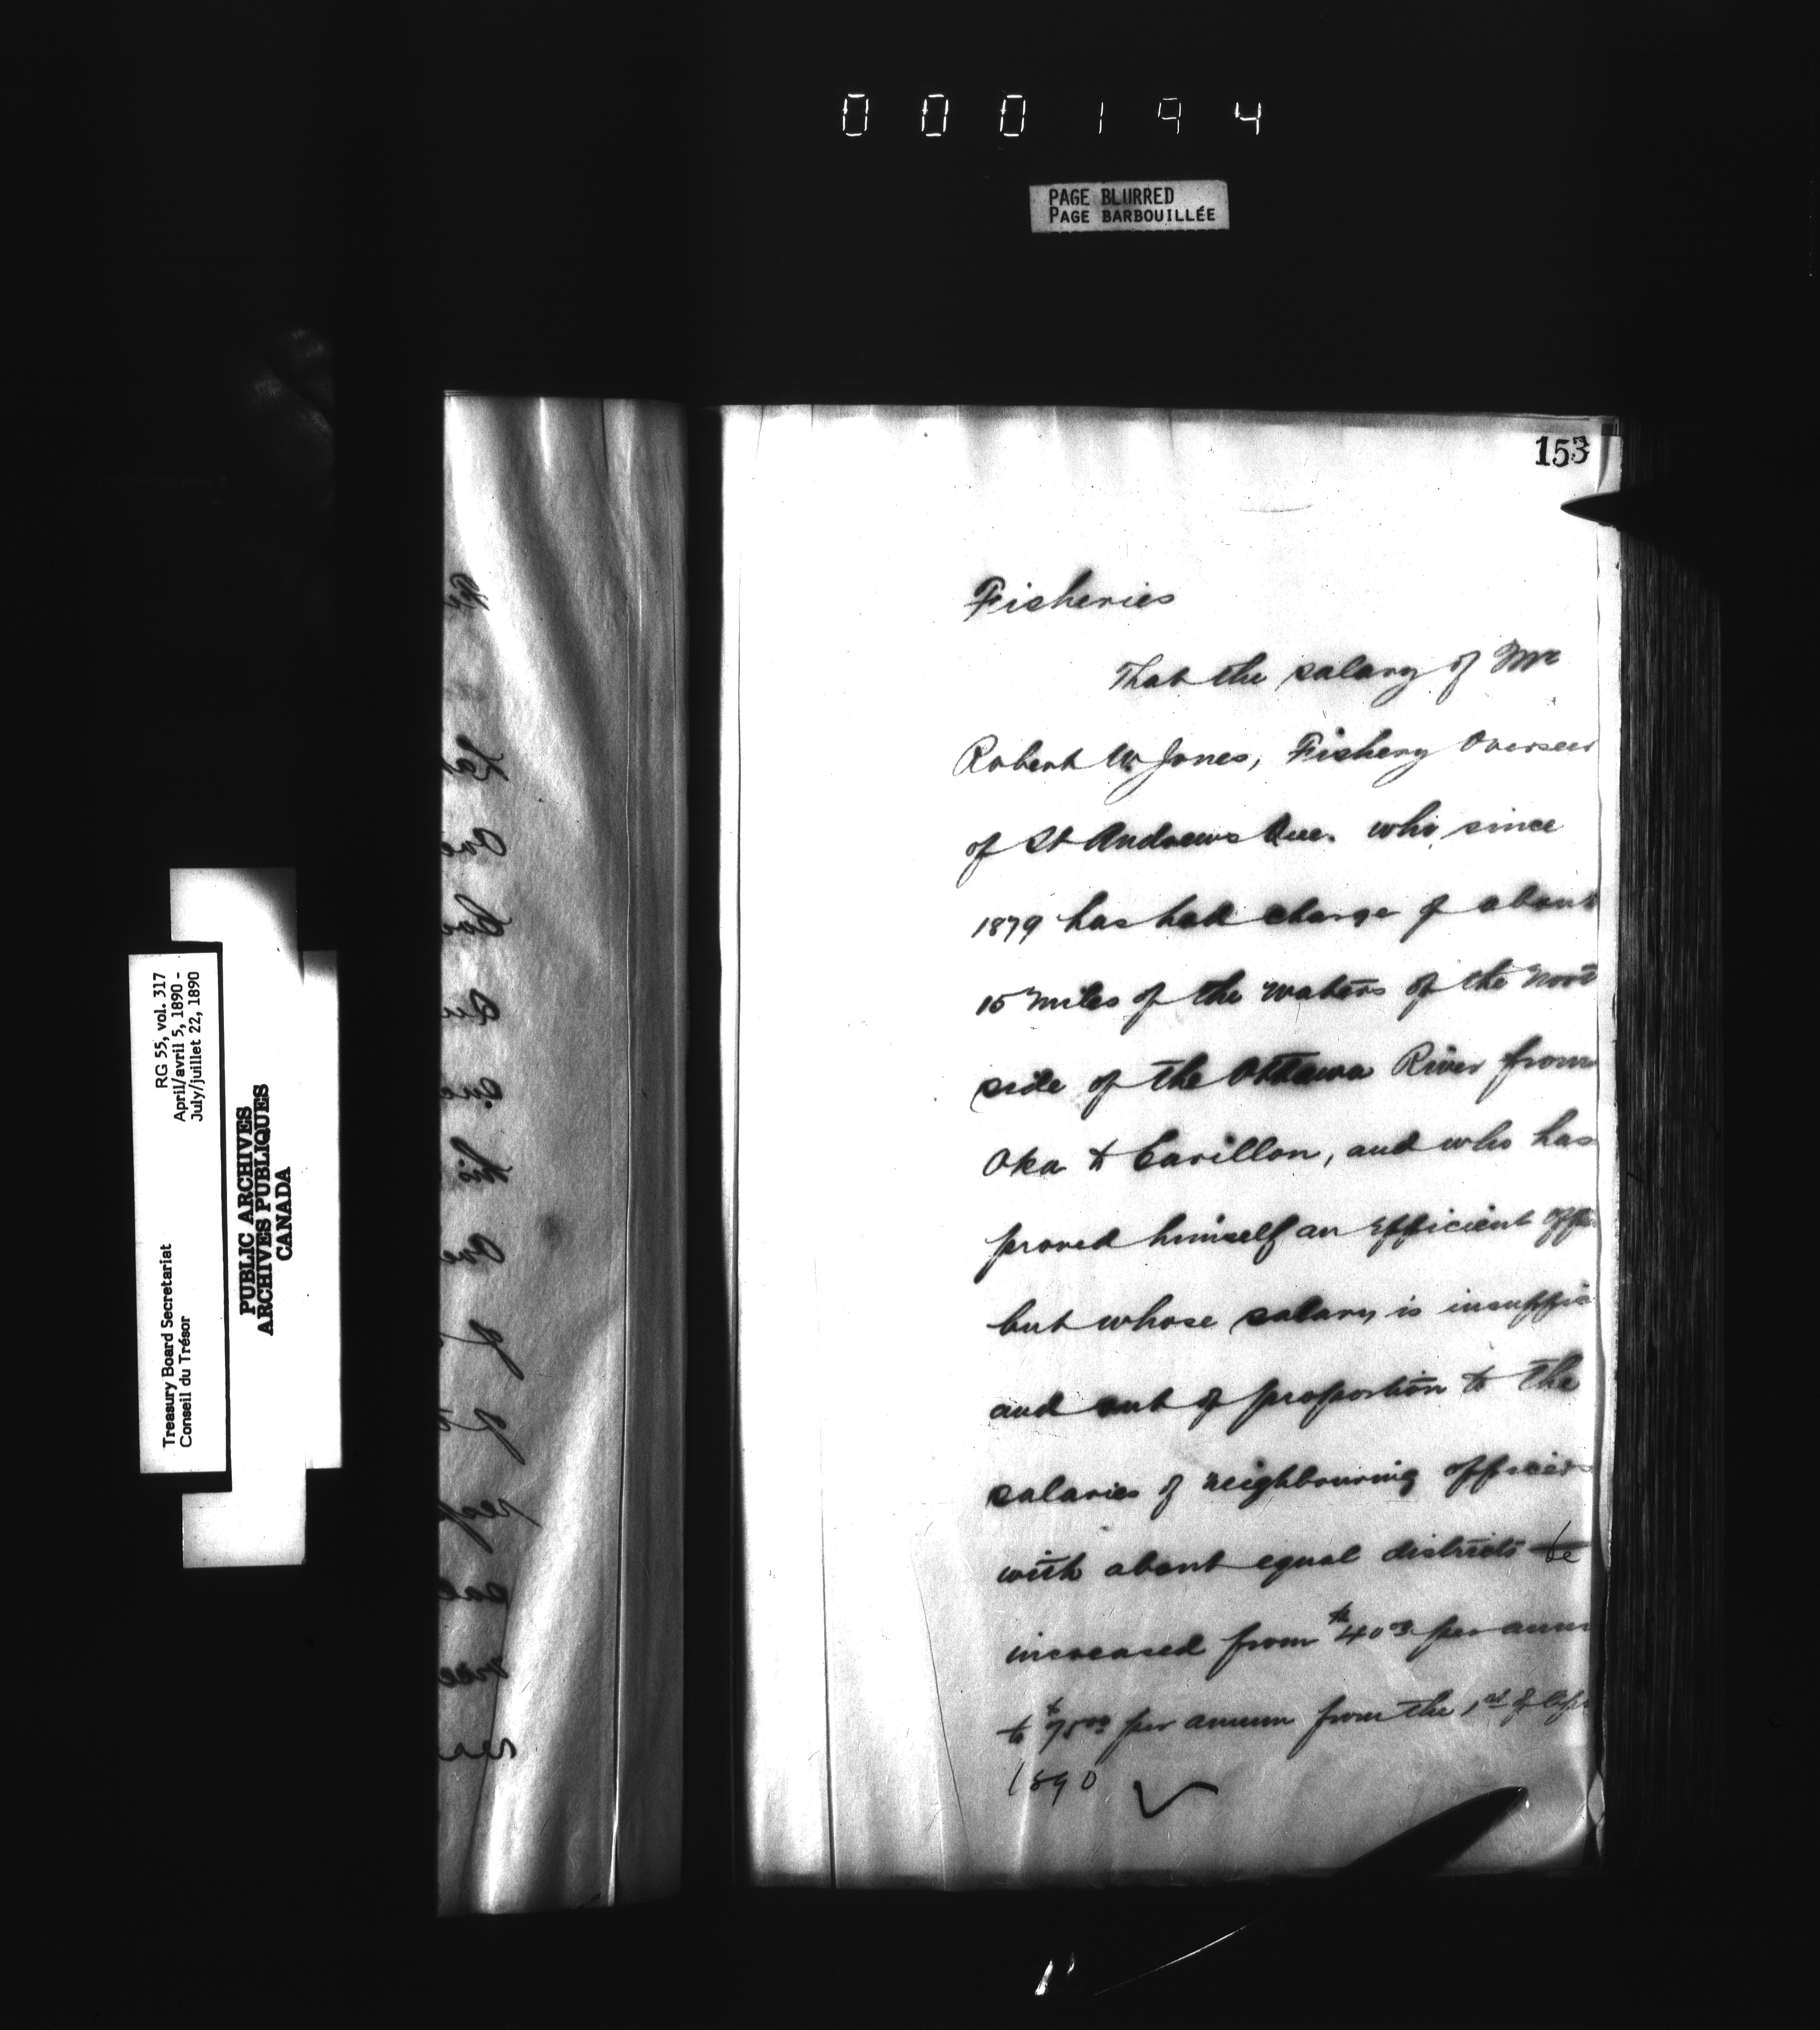 000194
PAGE BLURRED
PAGE BARBOUILLÉE
153
RG 55, vol. 317
April/avril 5, 1890 -
July/juillet 22, 1890
Treasury Board Secretariat
Conseil du Trésor
PUBLIC ARCHIVES
ARCHIVES PUBLIQUES
CANADA
Fisheries
That the salary of Mr
Robert W Jones, Fishery Overseer
of St Andrews Que. who, since
1879 has had charge of about
15 miles of the waters of the
side of the Ottawa River from
Oka to Carillon, and who has
proved himself an efficient
but whose salary is
and out of proportion to the
salaries of neighbouring officers
with about equal districts be
increased from $40.00 per
to $75.00 per annum from the 1st of
1890